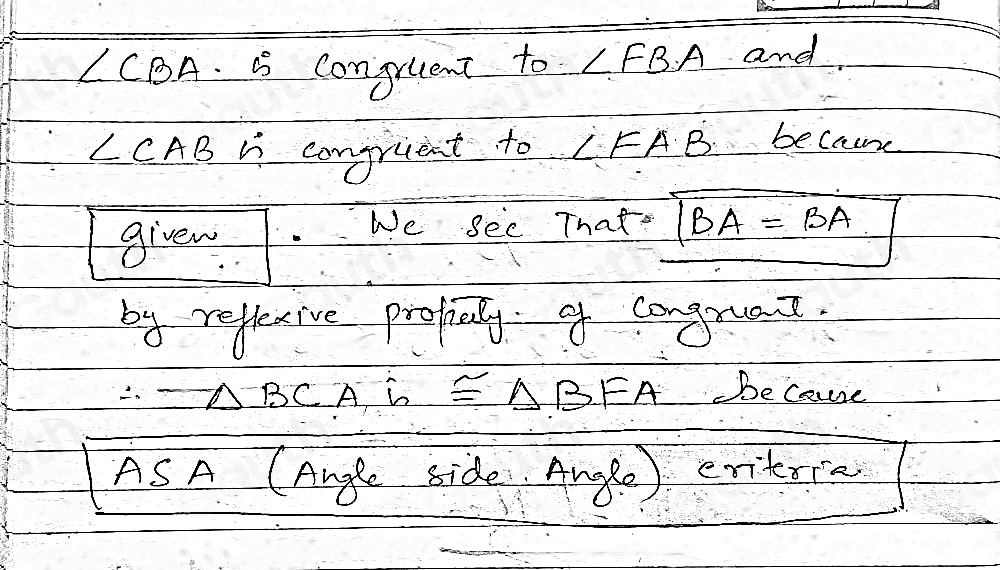 ∠CBA. is congruent to ∠FBA and
∠CAB is congruent to ∠FAB because
given. We see That BA = BA
by reflexive property of congruent.
∴ △BCA is ≅ △BFA because
ASA (Angle side Angle) criterria